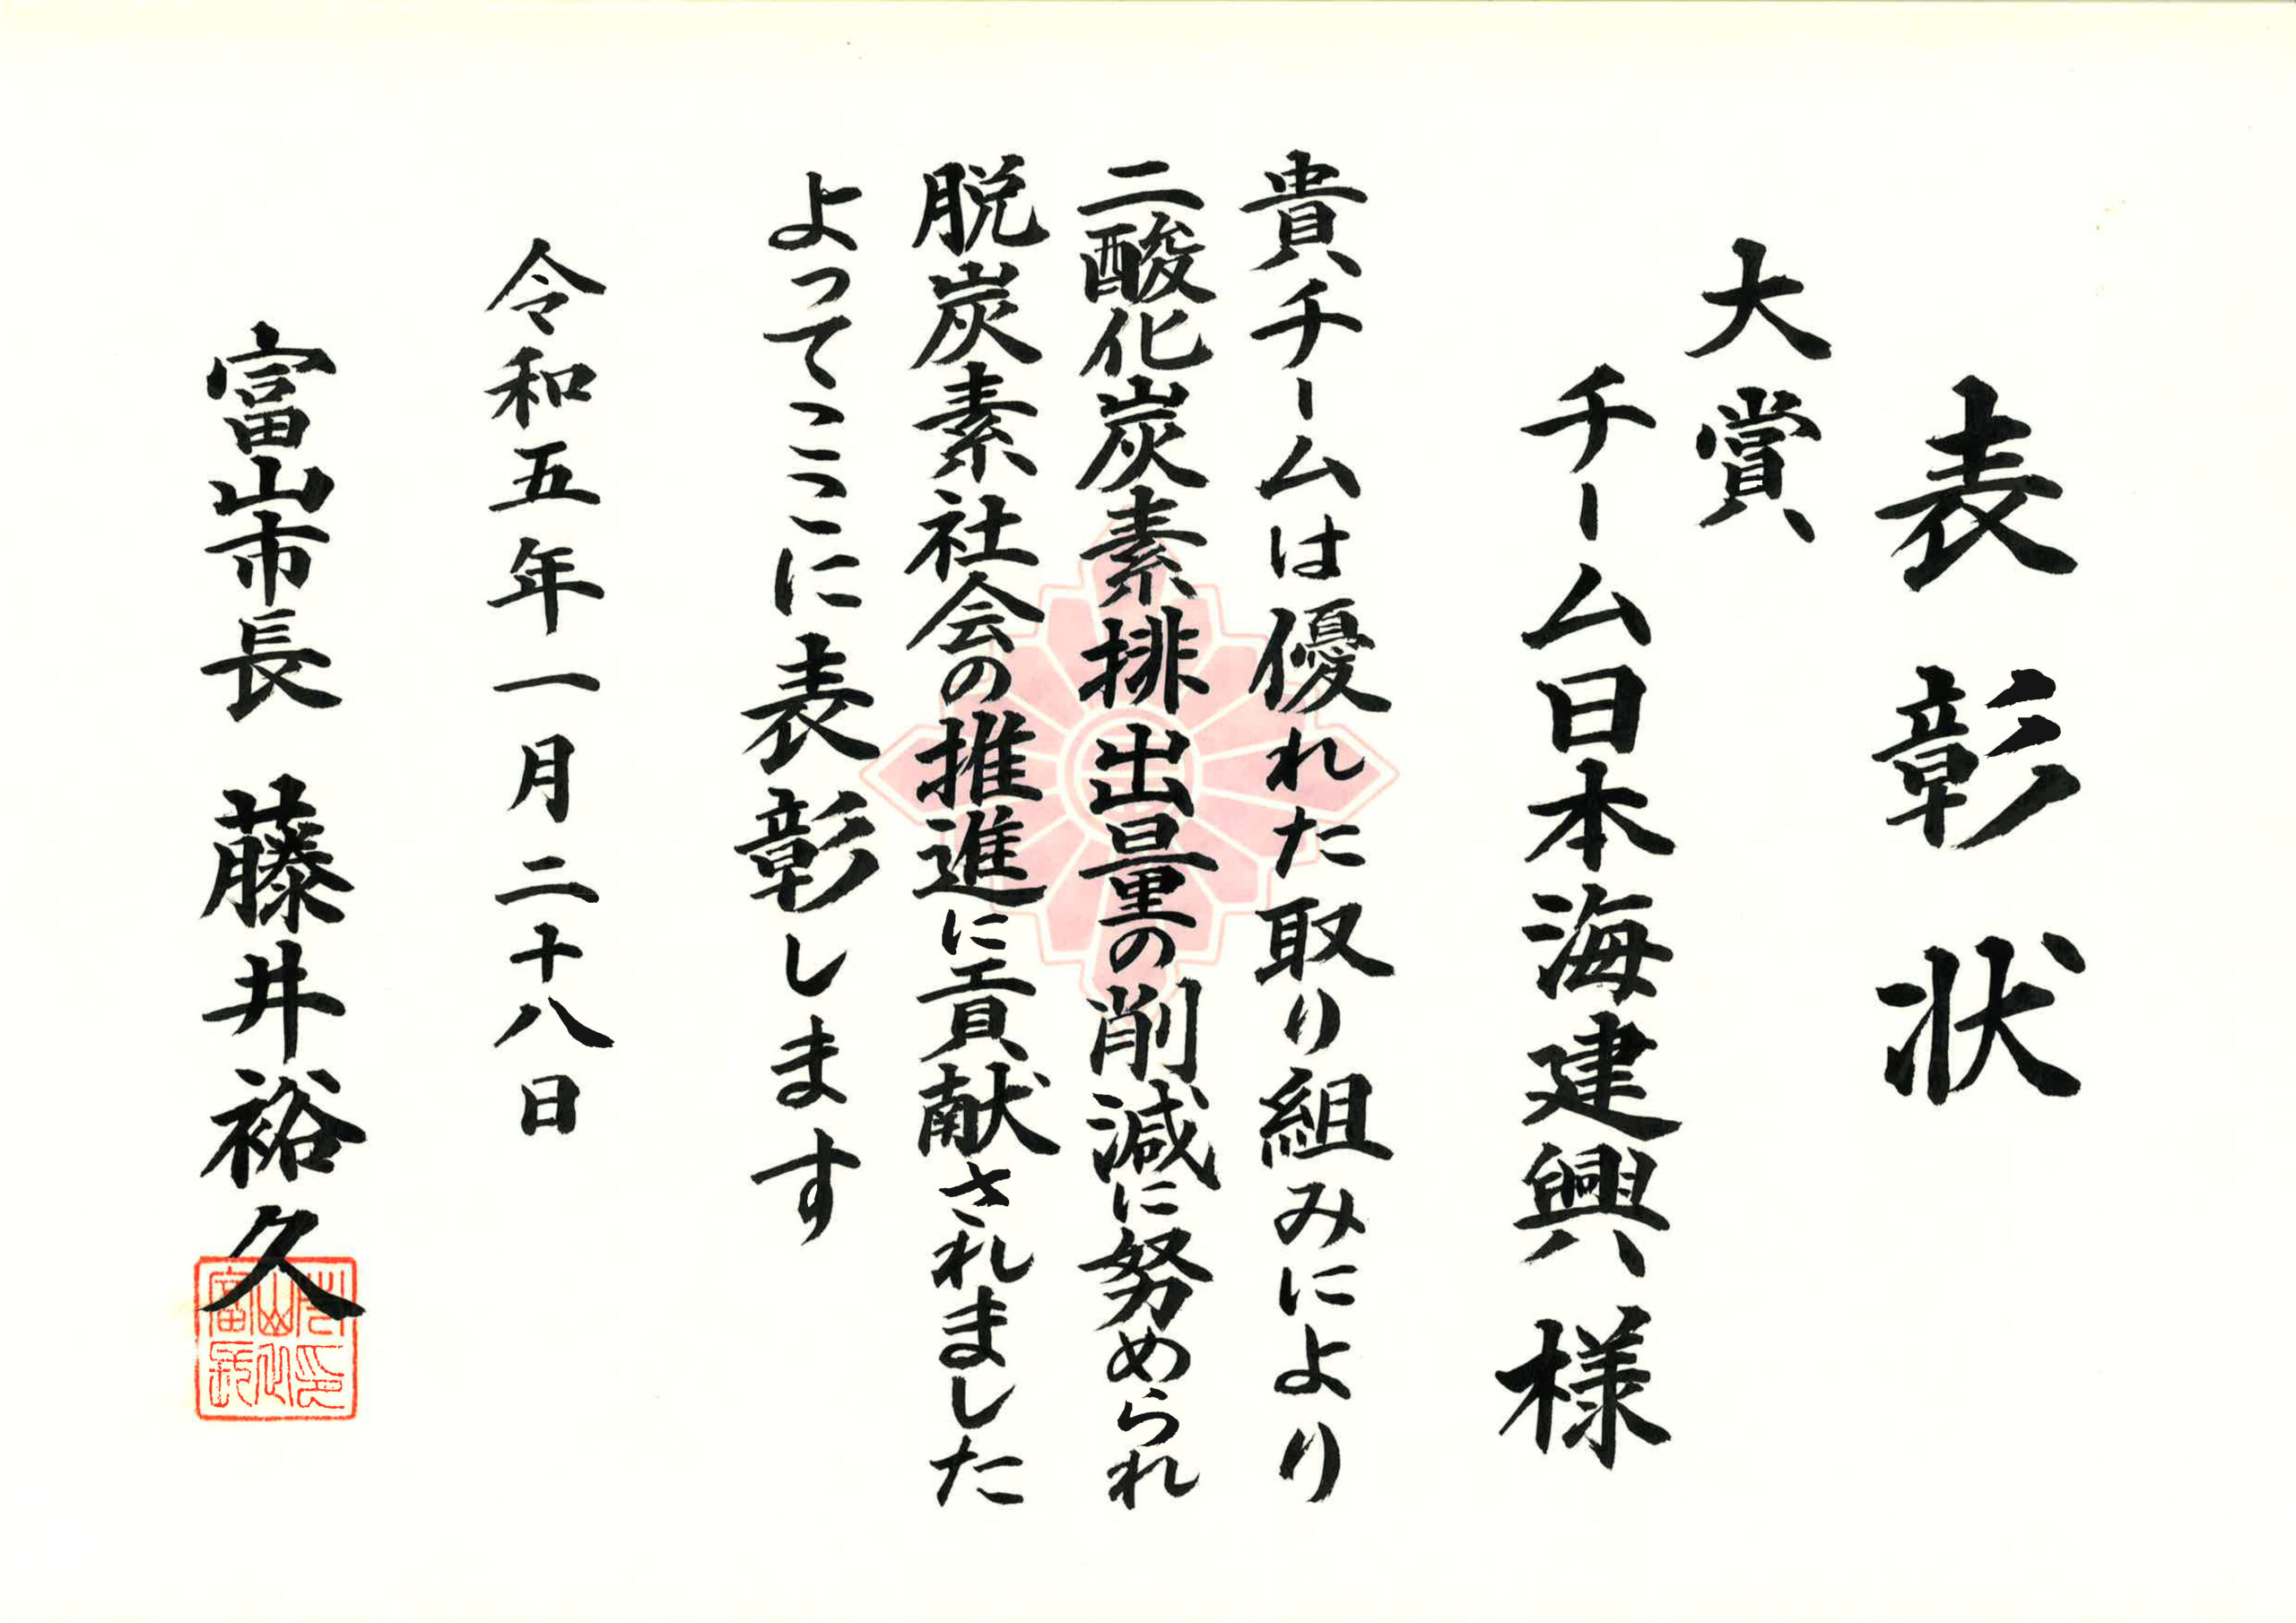 表彰状
大賞
チーム日本海建興様
貴チームは優れた取り組みにより
二酸化炭素排出量の削減に努められ
脱炭素社会の推進に貢献されました
よってここに表彰します
令和五年一月二十八日
富山市長 藤井裕久